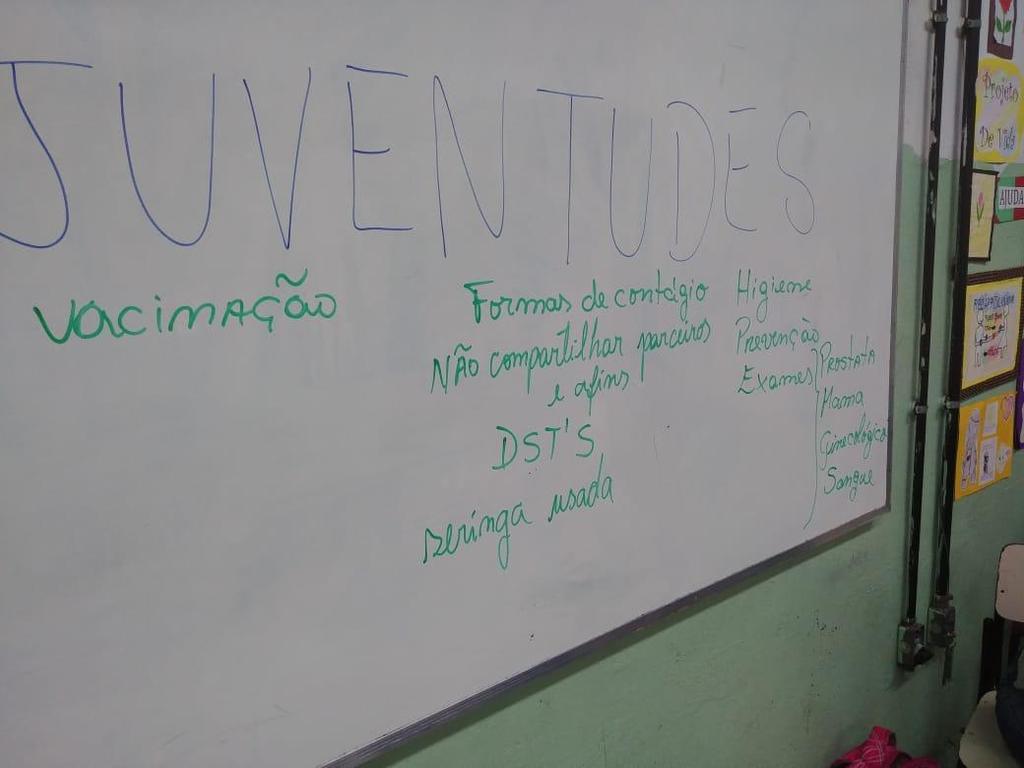 JUVENTUDES
VacinAção
Formas de contágio
NÃO compartilhar parceiros
e afins
DST'S
seringa usada
Higiene
Prevenção
Exames
PROSTATA
Mama
Ginecológico
Sangue
Projeto
De Vida
AJUDA